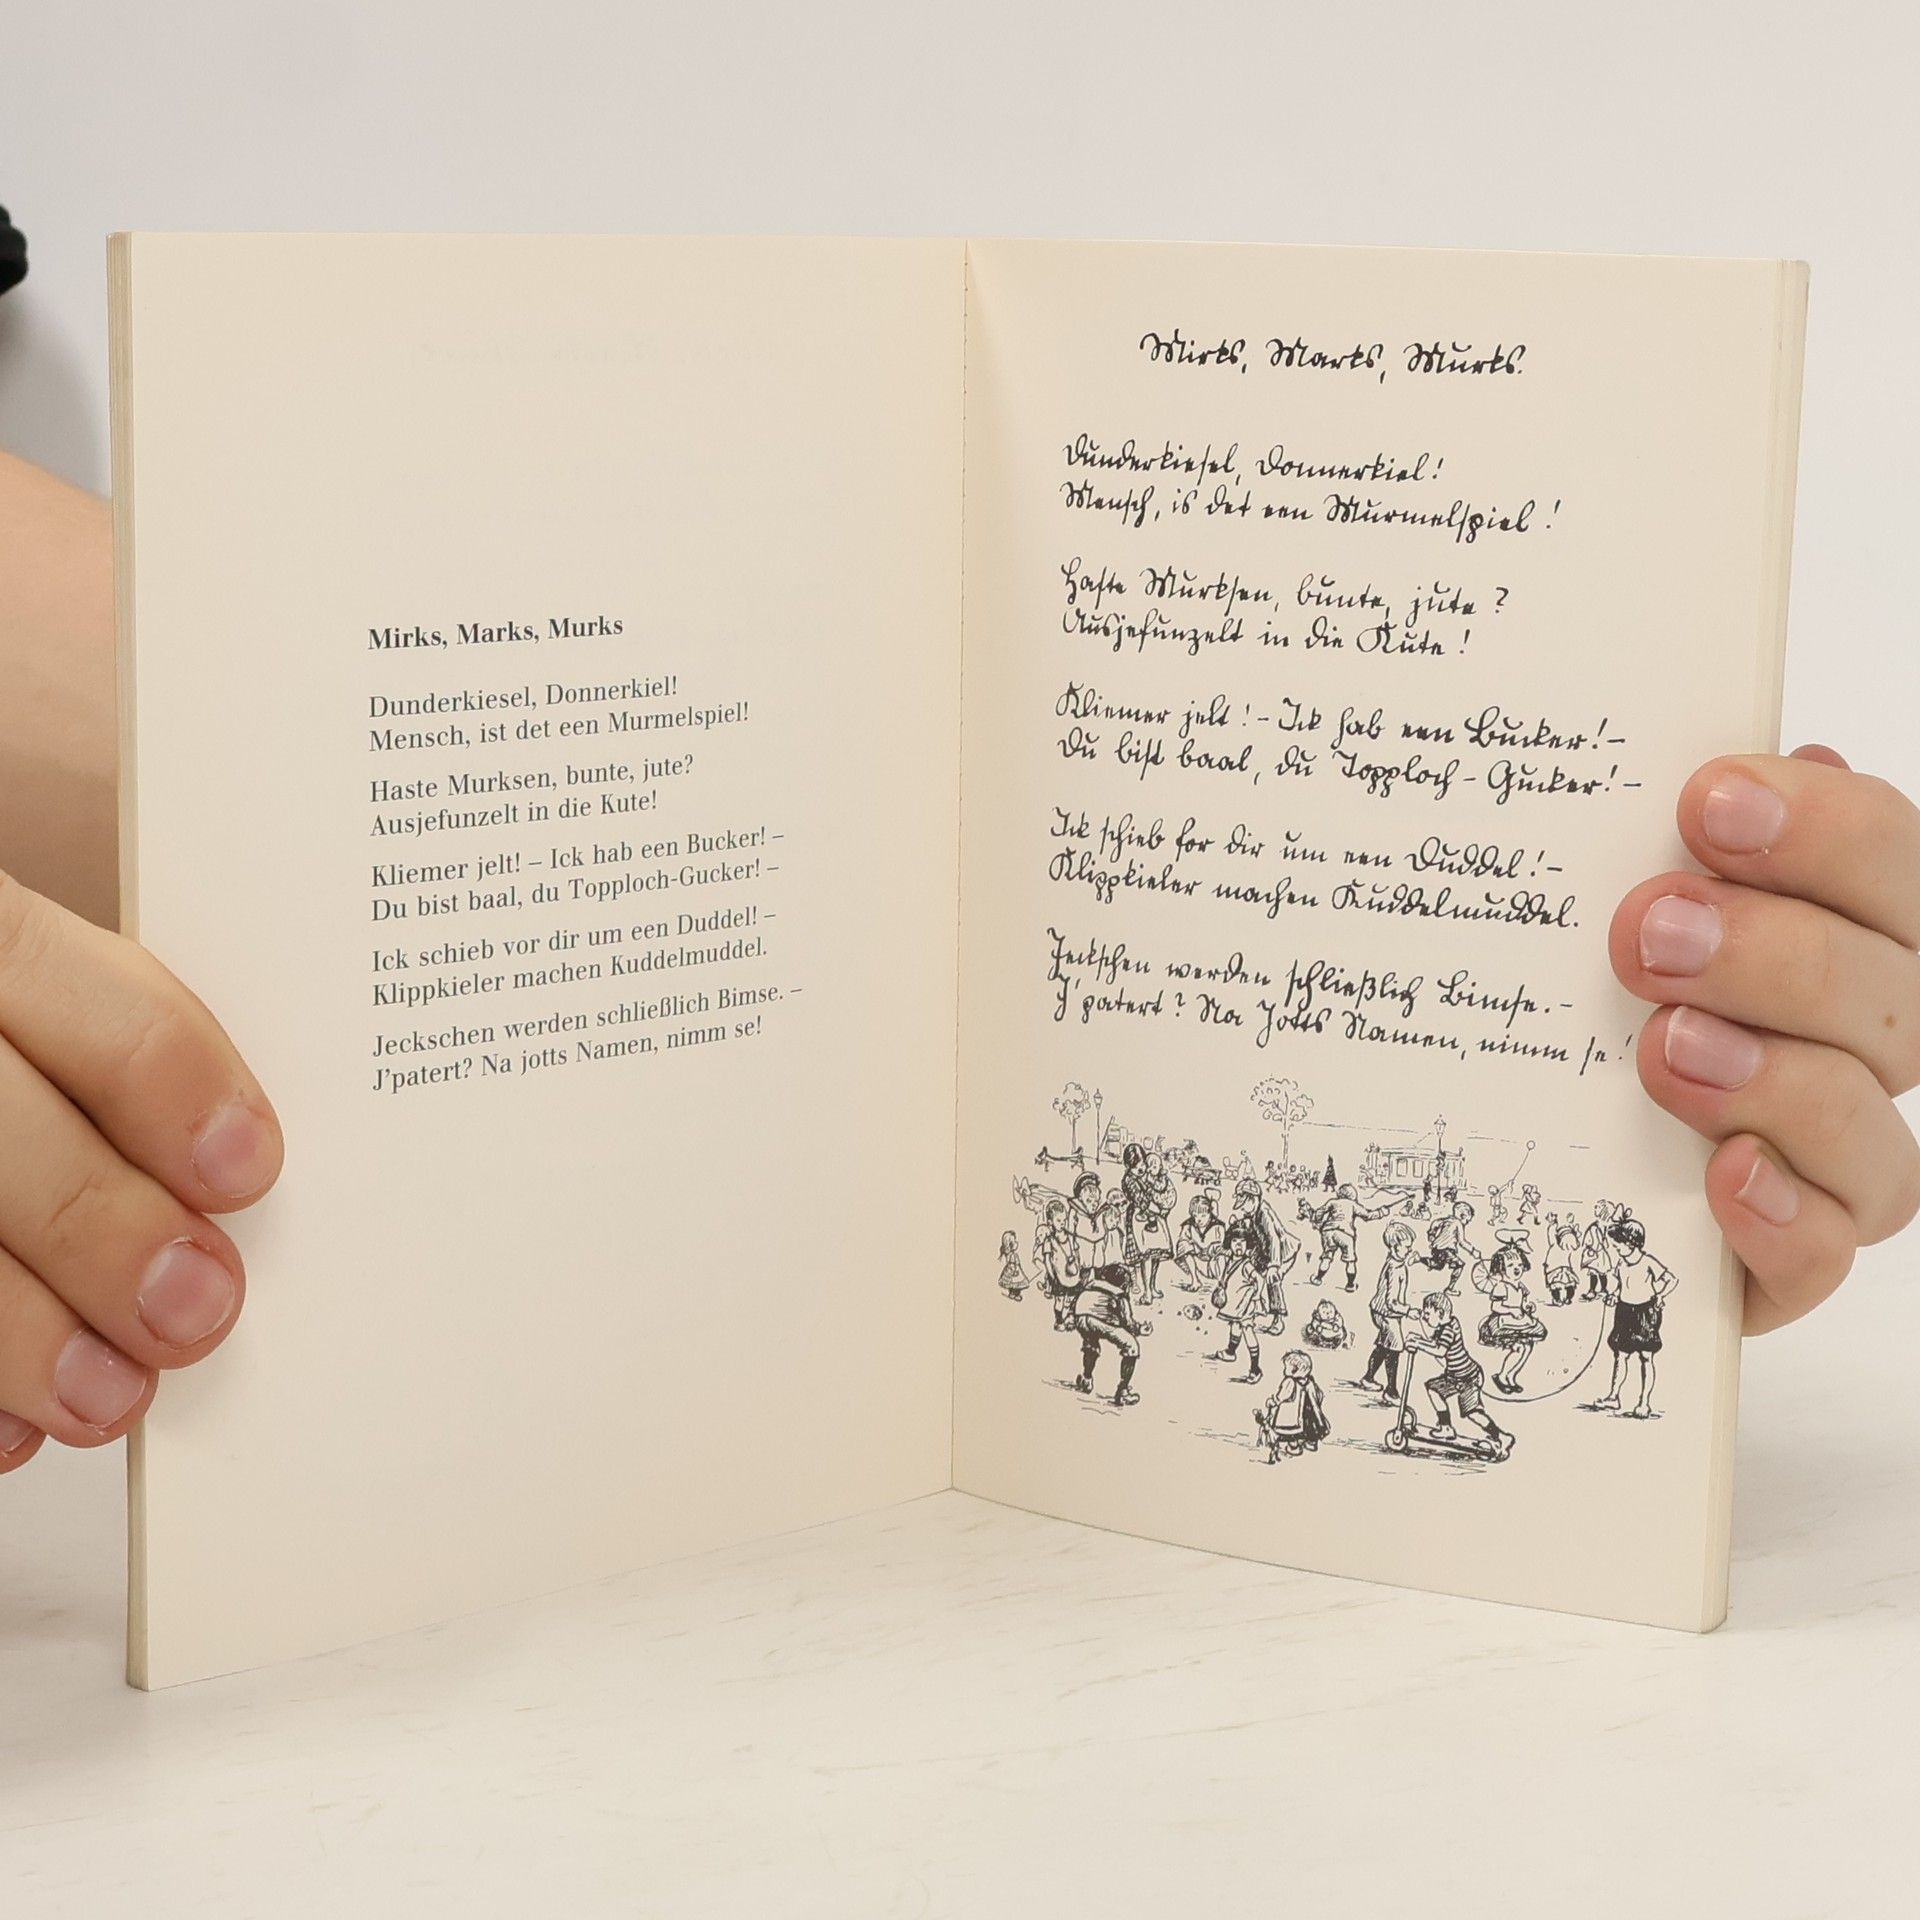 Mirks, Marks, Murks
Dunderkiesel, Donnerkiel!
Mensch, ist det een Murmelspiel!
Haste Murksen, bunte, jute?
Ausjefunzelt in die Kute!
Kliemer jelt! – Ick hab een Bucker! –
Du bist baal, du Topploch-Gucker! –
Ick schieb vor dir um een Duddel! –
Klippkieler machen Kuddelmuddel.
Jeckschen werden schließlich Bimse. –
J’patert? Na jotts Namen, nimm se!
Mirks, Marks, Murks.
Dunderkiesel, Donnerkiel!
Mensch, is det een Murmelspiel!
Haste Murksen, bunte, jute?
Ausjefunzelt in die Kute!
Kliemer jelt! – Ick hab een Bucker! –
Du bist baal, du Topploch-Gucker! –
Ick schieb for dir um een Duddel! –
Klippkieler machen Kuddelmuddel.
Jeckschen werden schließlich Bimse. –
J’patert? Na Jotts Namen, nimm se!